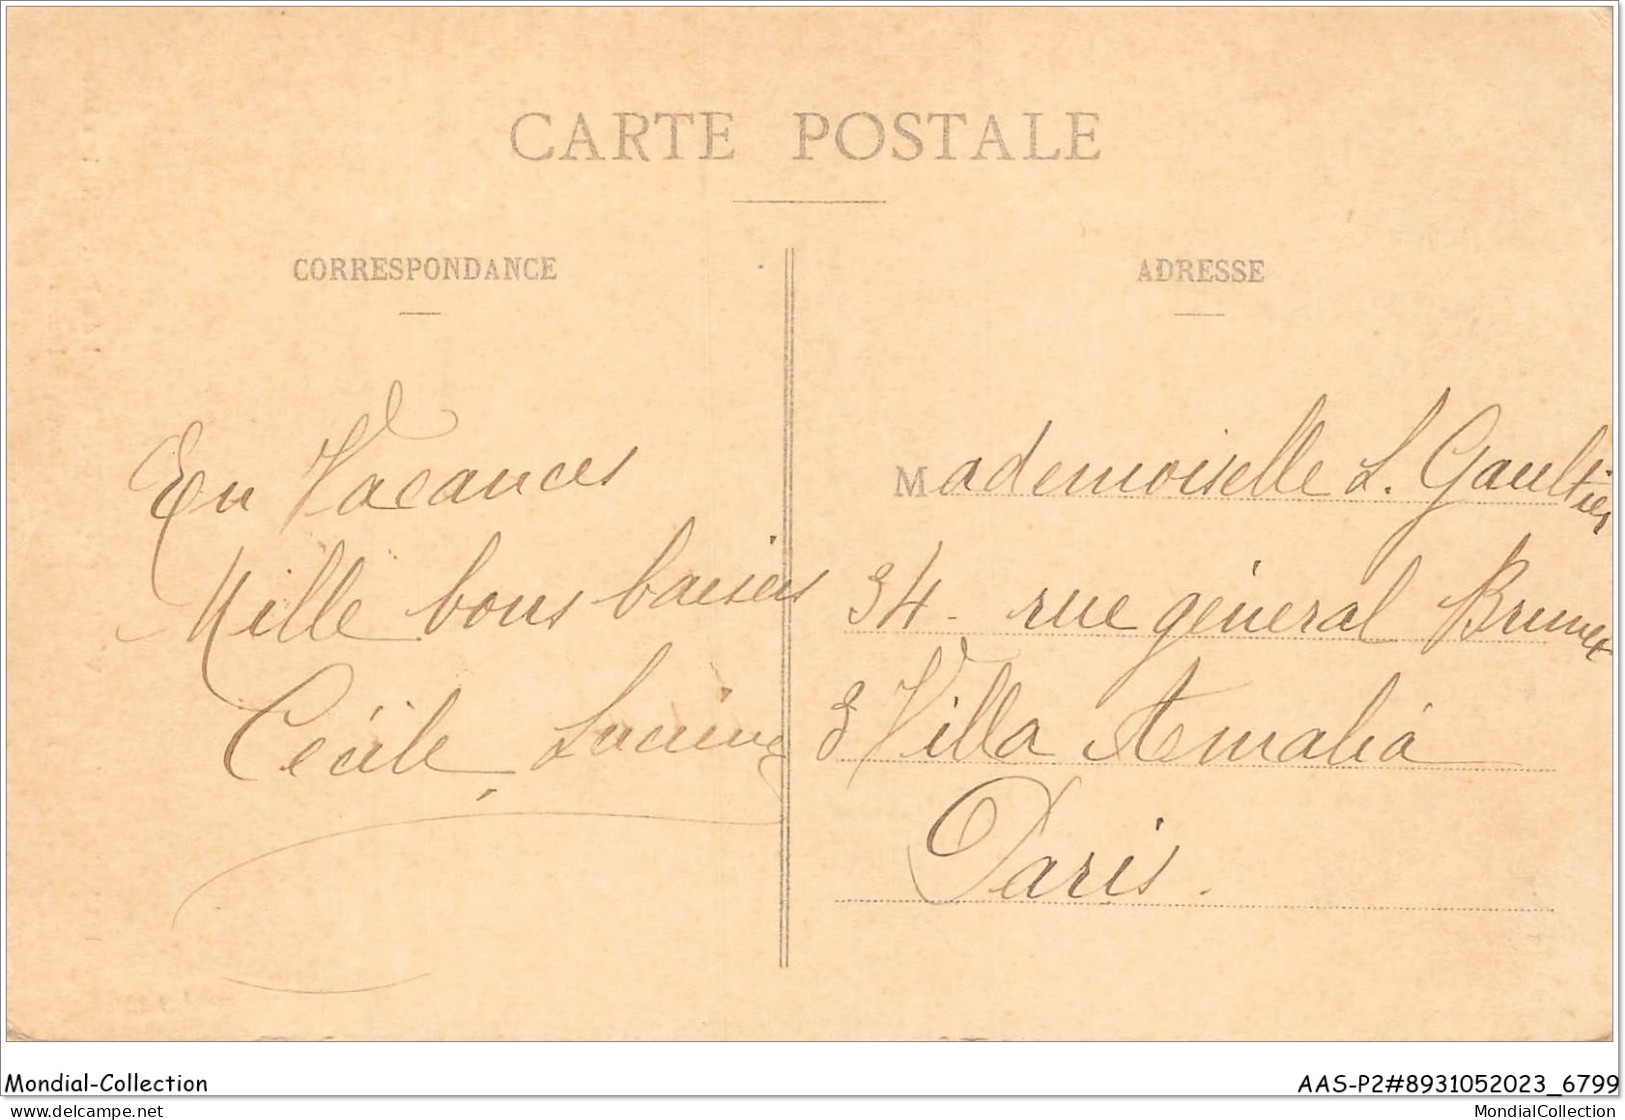 CARTE POSTALE
CORRESPONDANCE
ADRESSE
En Vacances
Mille bons baisers
Cécile, Lucienne
Mademoiselle L. Gaultier
34 - rue général Brunet
3 Villa Amalia
Paris.
Mondial-Collection
AAS-P2#8931052023_6799
www.delcampe.net
MondialCollection